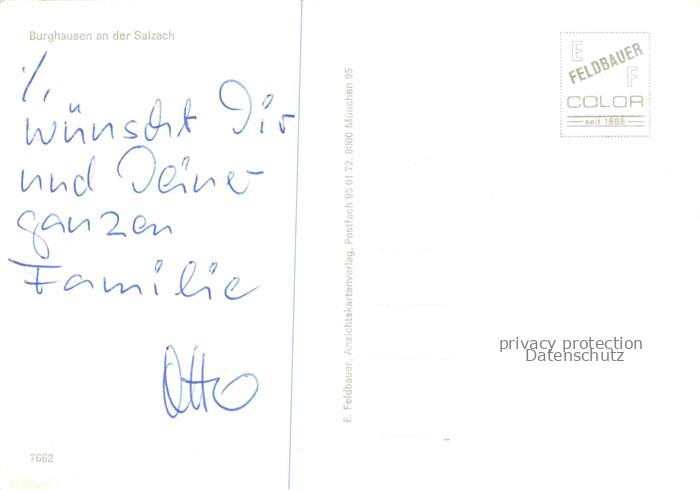 Burghausen an der Salzach
./.
wünscht Dir
und Deiner
ganzen
Familie
Otto
7662
E. Feldbauer, Ansichtskartenverlag, Postfach 95 01 72, 8000 München 95
E
FELDBAUER
F
COLOR
seit 1888
privacy protection
Datenschutz